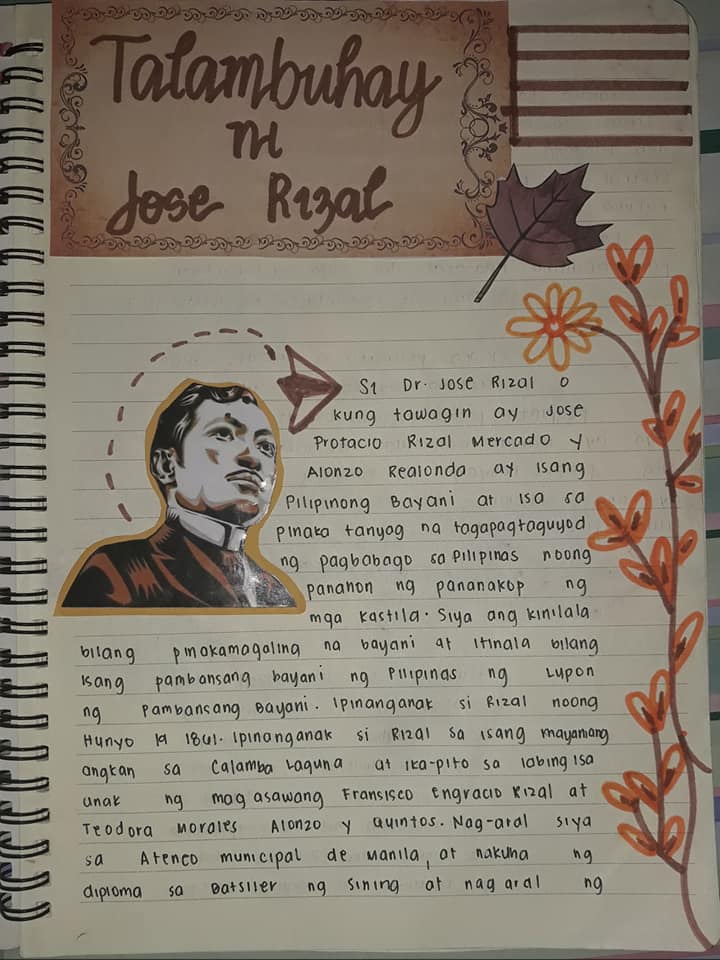 Talambuhay
ni
Jose Rizal
Si Dr. Jose Rizal o
kung tawagin ay Jose
Protacio Rizal Mercado y
Alonzo Realonda ay isang
Pilipinong Bayani at isa sa
pinaka tanyag na tagapagtaguyod
ng pagbabago sa Pilipinas noong
panahon ng pananakop ng
mga kastila. Siya ang kinilala
bilang pinakamagaling na bayani at itinala bilang
isang pambansang bayani ng Pilipinas ng Lupon
ng Pambansang Bayani. Ipinanganak si Rizal noong
Hunyo 19 1861. Ipinanganak si Rizal sa isang mayamang
angkan sa Calamba Laguna at ika-pito sa labing isa
anak ng mag asawang Fransisco Engracio Rizal at
Teodora Morales Alonzo y Quintos. Nag-aral siya
sa Ateneo municipal de Manila, at nakuha ng
diploma sa Batsiler ng Sining at nag aral ng